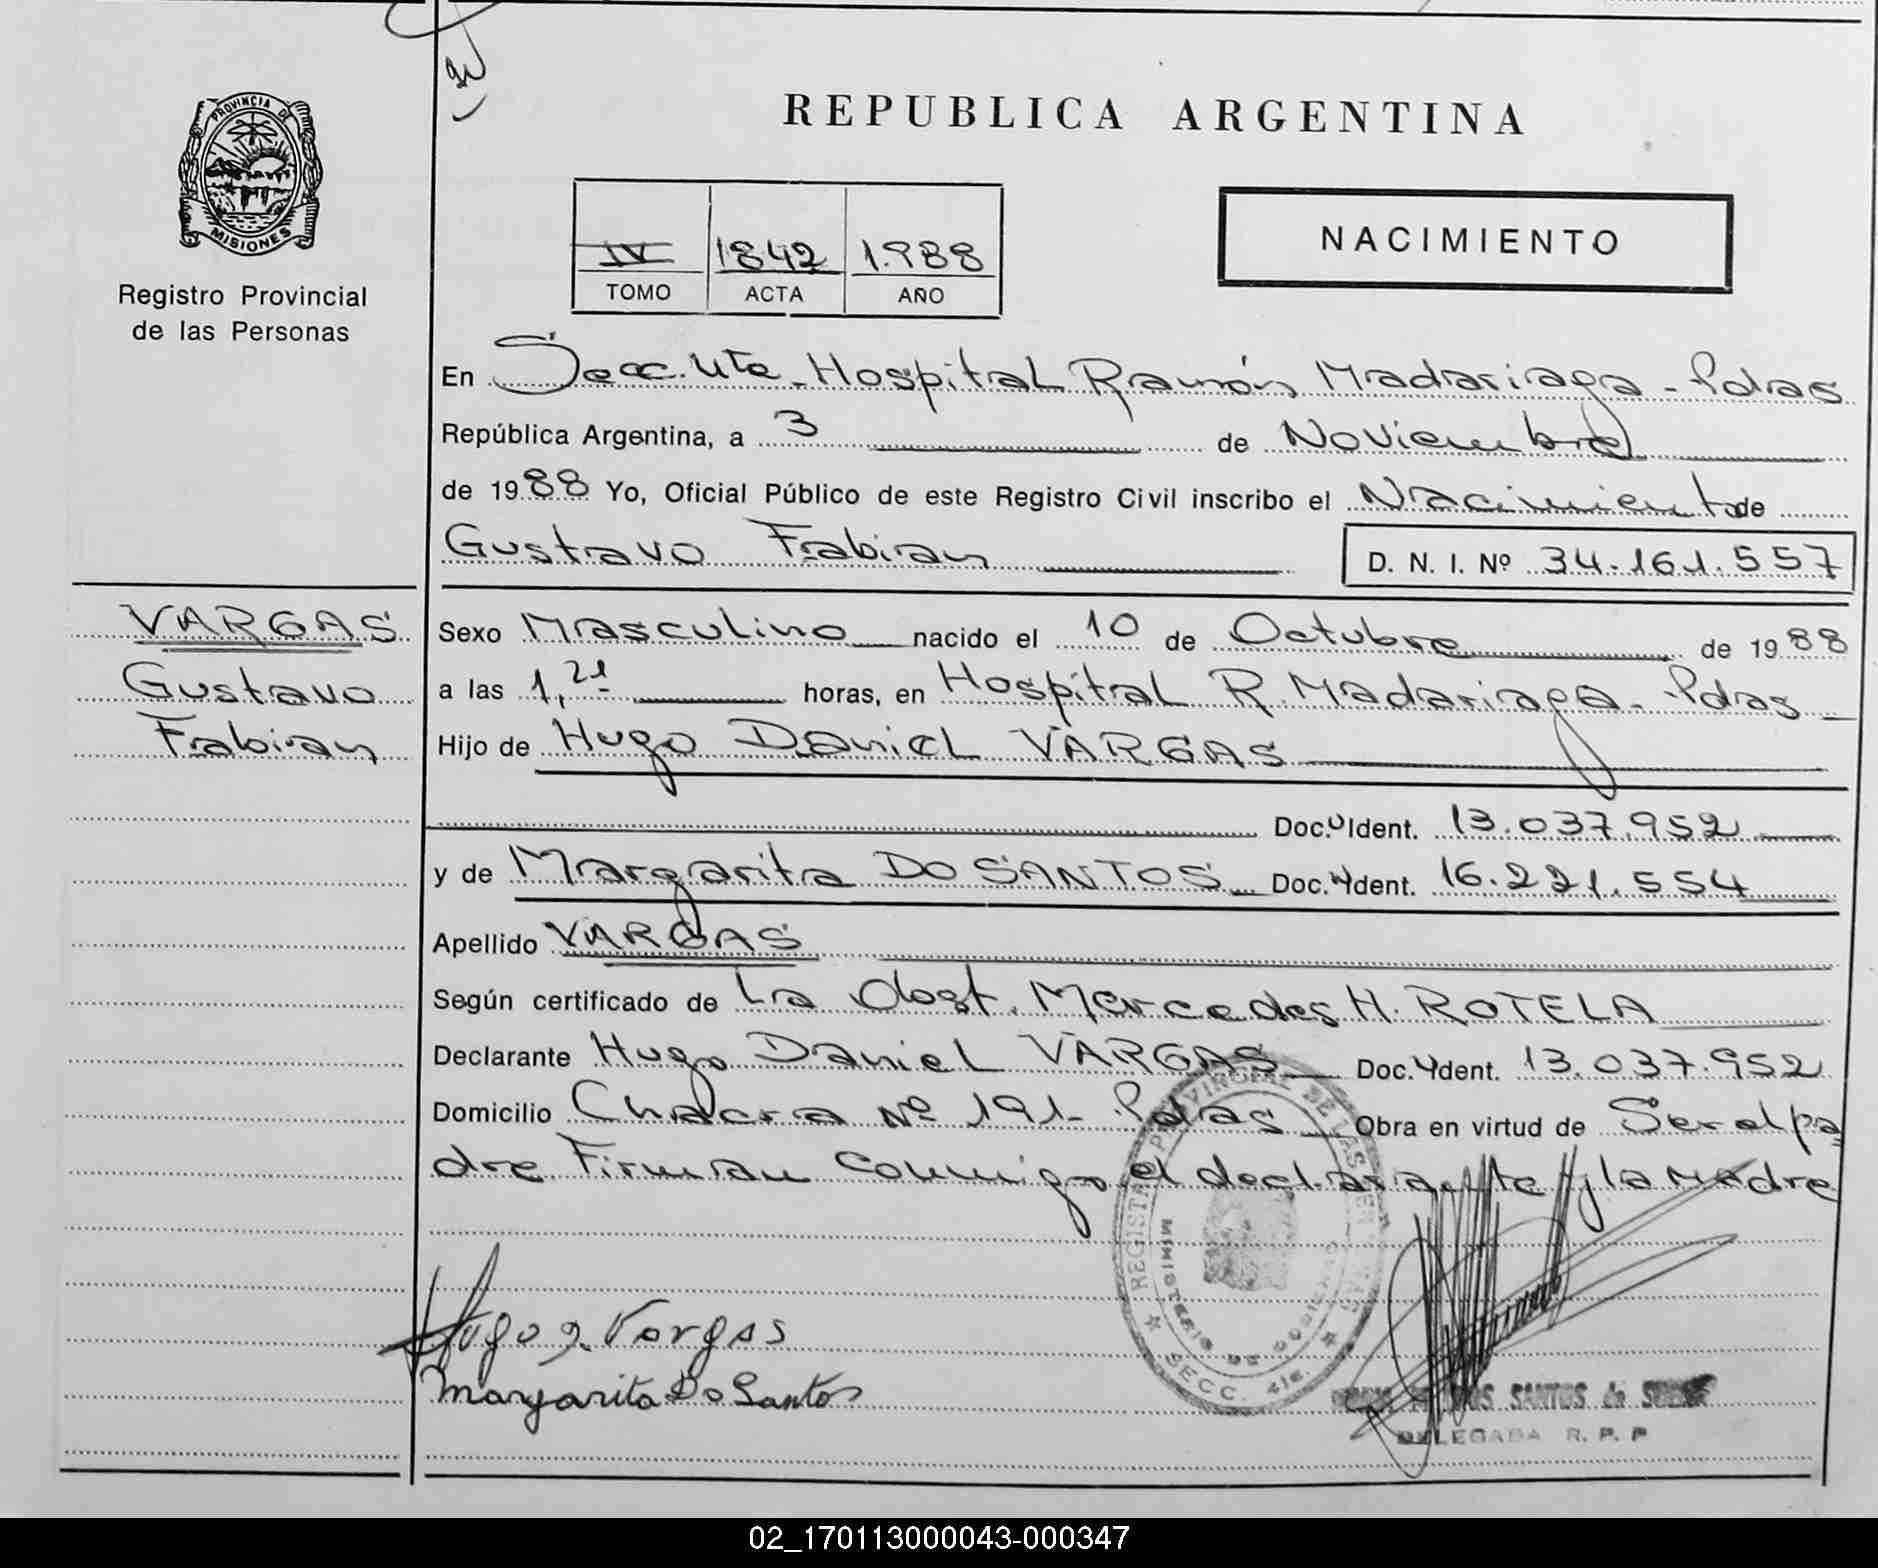 PROVINCIA DE
MISIONES
Registro Provincial
de las Personas
REPUBLICA ARGENTINA
IV 1842 1.988
TOMO ACTA AÑO
NACIMIENTO
En Secc. 4ta - Hospital Ramón Madariaga - Pdas
República Argentina, a 3 de Noviembre
de 1988 Yo, Oficial Público de este Registro Civil inscribo el Nacimiento de
Gustavo Fabian D. N. I. Nº 34.161.557
VARGAS
Gustavo
Fabian
Sexo Masculino nacido el 10 de Octubre de 1988
a las 1,21 horas, en Hospital R. Madariaga - Pdas
Hijo de Hugo Daniel VARGAS
Doc. Ident. 13.037.952
y de Margarita DO SANTOS Doc. Ident. 16.221.554
Apellido VARGAS
Según certificado de La Obst. Mercedes H. ROTELA
Declarante Hugo Daniel VARGAS Doc. Ident. 13.037.952
Domicilio Chacra Nº 191 - Pdas Obra en virtud de Ser el pa
dre Firman conmigo el declarante y la Madre
REGISTRO PROVINCIAL DE LAS PERSONAS
MINISTERIO DE GOBIERNO
SECC. 4ta.
Hugo D. Vargas
Margarita Do Santos
SANTOS de
DELEGADA R. P. P
02_170113000043-000347